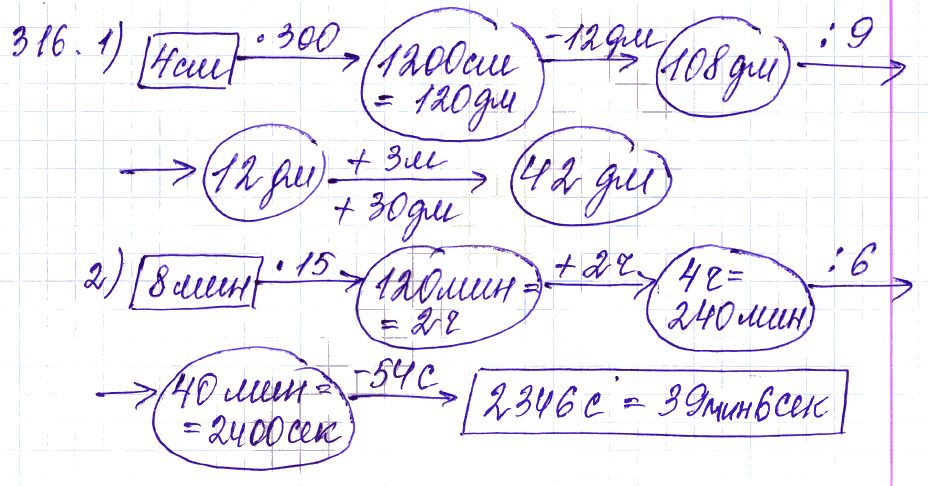 316. 1) 4см ·300 1200см = 120дм -12дм 108дм :9
12 дм + 3м + 30дм 42 дм
2) 8мин ·15 120мин = = 2ч + 2ч 4ч = 240мин :6
40мин = = 2400сек -54с 2346с = 39мин6сек